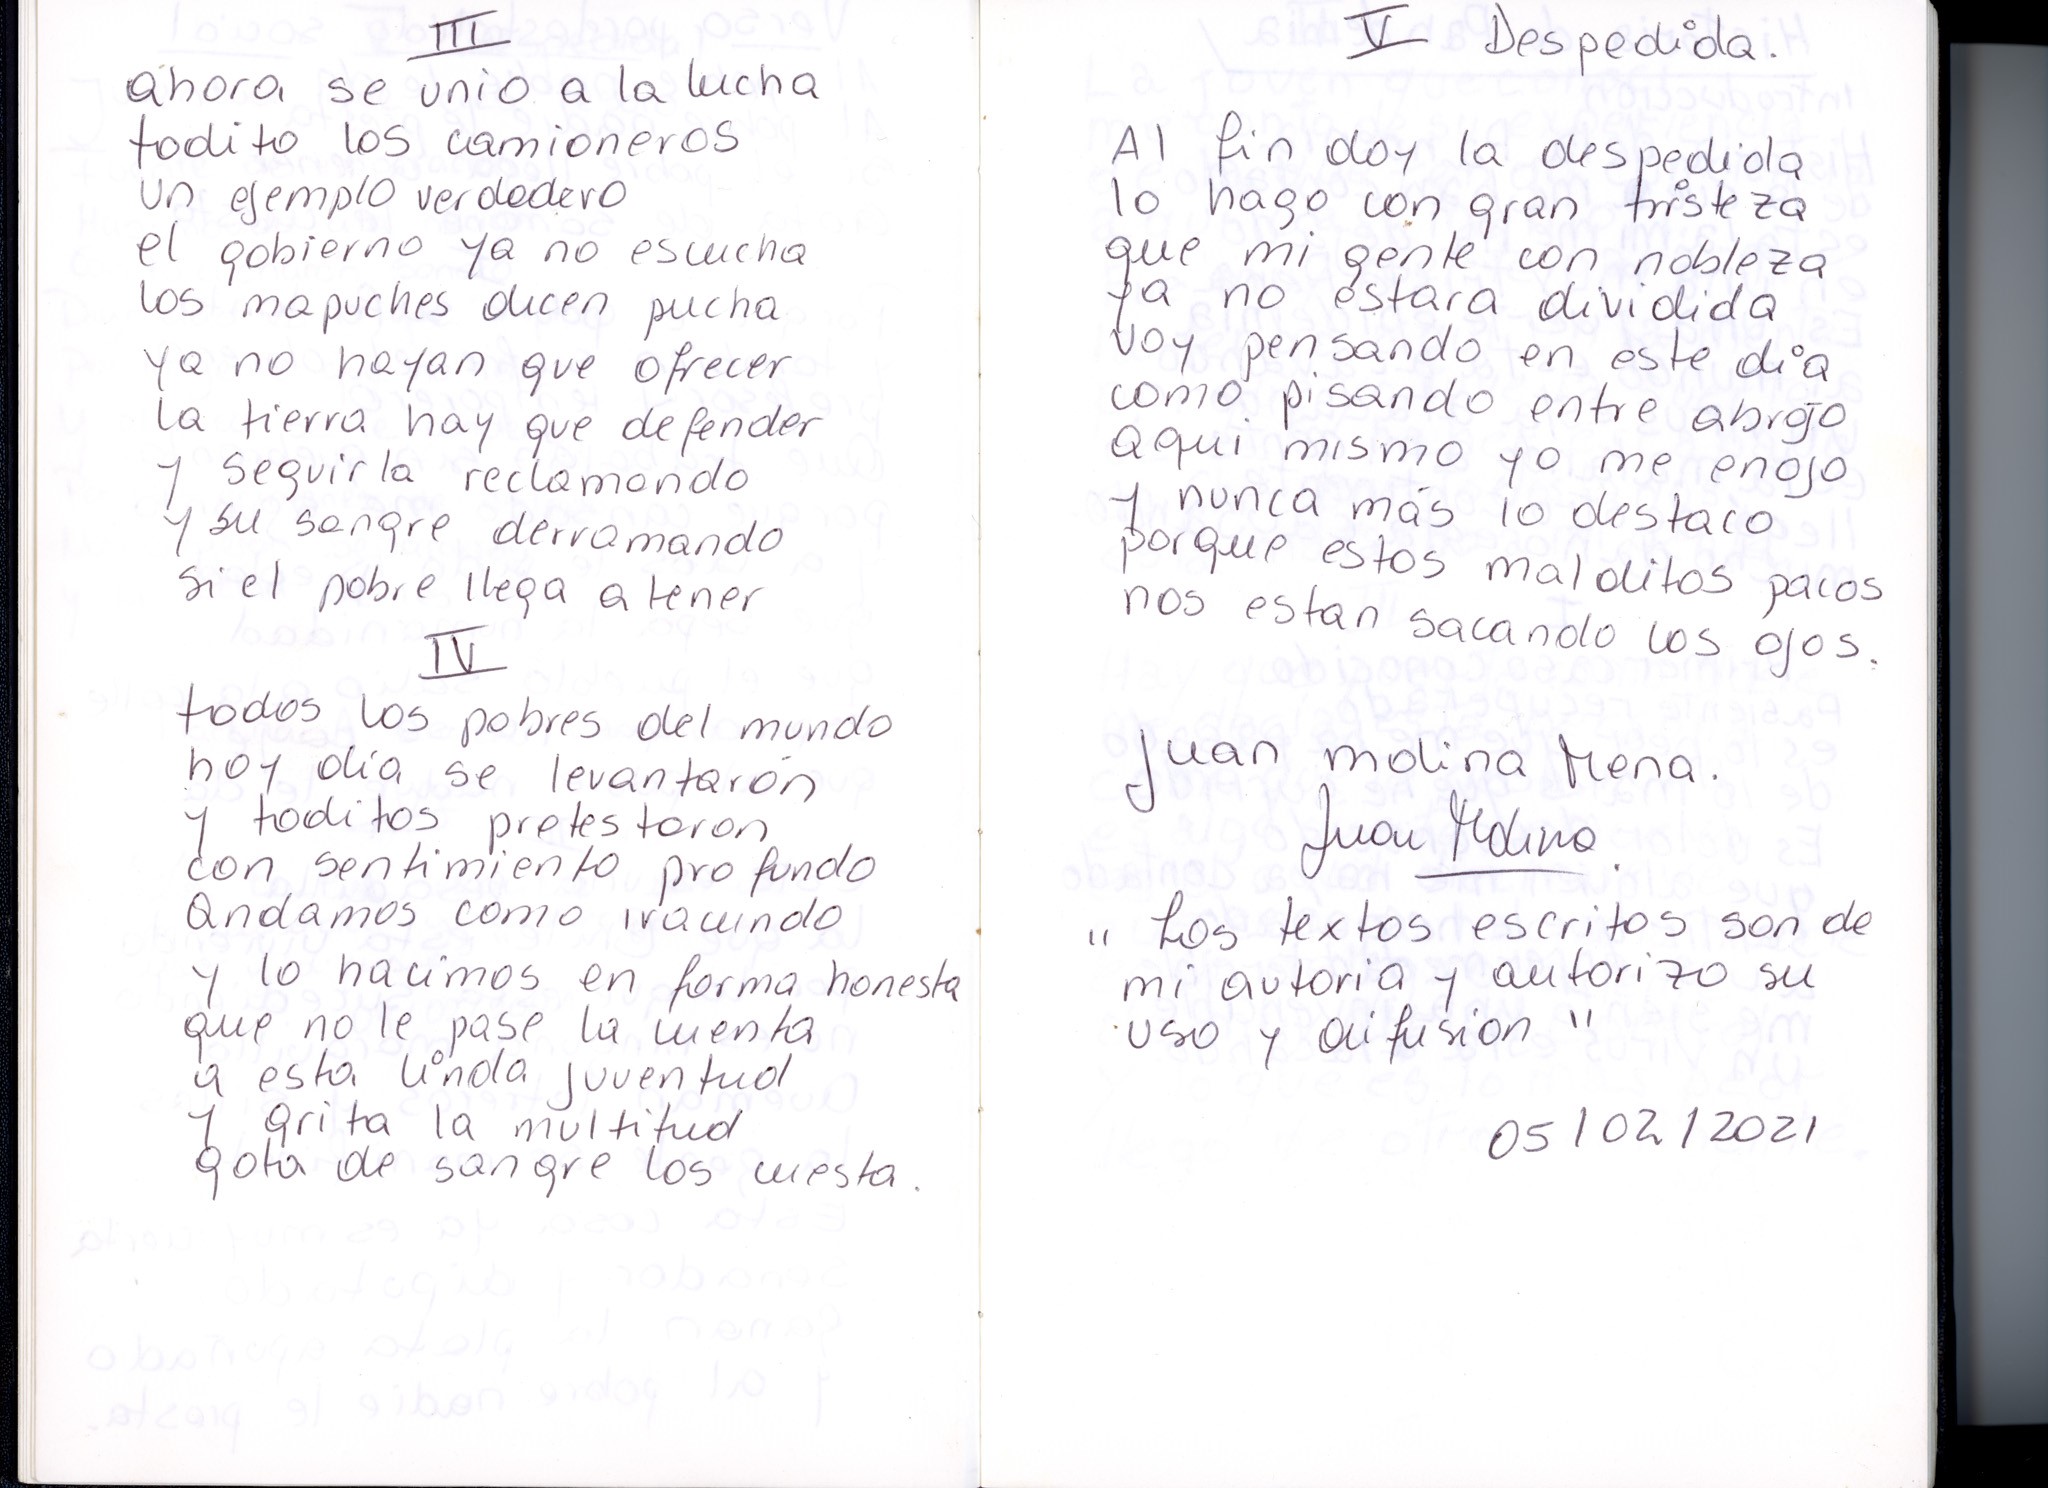 III
ahora se unio a la lucha
todito los camioneros
un ejemplo verdadero
el gobierno ya no escucha
los mapuches dicen pucha
ya no hayan que ofrecer
la tierra hay que defender
y seguirla reclamando
y su sangre derramando
si el pobre llega a tener
IV
todos los pobres del mundo
hoy día se levantarón
y toditos protestaron
con sentimiento profundo
Andamos como iracundo
y lo hacimos en forma honesta
que no le pase la cuenta
a esta linda juventud
y grita la multitud
gota de sangre los cuesta.
V Despedida.
Al fin doy la despedida
lo hago con gran tristeza
que mi gente con nobleza
ya no estara dividida
voy pensando en este dia
como pisando entre abrojo
aqui mismo yo me enojo
y nunca más lo destaco
porque estos malditos pacos
nos estan sacando los ojos.
Juan Molina Mena.
Juan Molina.
" Los textos escritos son de
mi autoria y autorizo su
uso y difusion "
05/02/2021